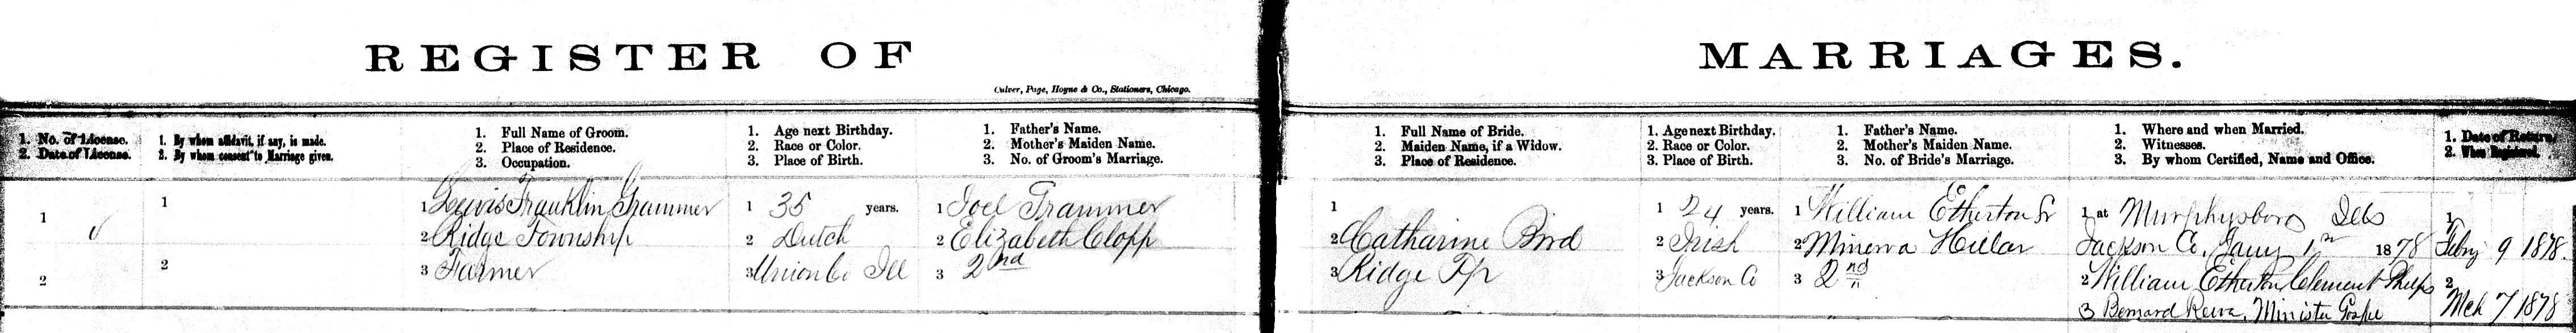 REGISTER OF MARRIAGES.
Culver, Page, Hoyne & Co., Stationers, Chicago.
1. No. of License.
2. Date of License.
1. By whom affidavit, if any, is made.
2. By whom consent to Marriage given.
1. Full Name of Groom.
2. Place of Residence.
3. Occupation.
1. Age next Birthday.
2. Race or Color.
3. Place of Birth.
1. Father's Name.
2. Mother's Maiden Name.
3. No. of Groom's Marriage.
1. Full Name of Bride.
2. Maiden Name, if a Widow.
3. Place of Residence.
1. Age next Birthday.
2. Race or Color.
3. Place of Birth.
1. Father's Name.
2. Mother's Maiden Name.
3. No. of Bride's Marriage.
1. Where and when Married.
2. Witnesses.
3. By whom Certified, Name and Office.
1. Date of Return.
2. When Registered.
1
2
1
2
1 Lewis Franklin Trammer
2 Ridge Township
3 Farmer
1 35 years.
2 Dutch
3 Union Co Ill
1 Joel Trammer
2 Elizabeth Clopp
3 2nd
1
2 Catharine Bird
3 Ridge Tp
1 24 years.
2 Irish
3 Jackson Co
1 William Etherton Sr
2 Minerva
3 2nd
1 at Murphysboro Ills
Jackson Co, Jany 1st 1878
2 William Etherton Clement Phelps
3 Bernard Minister Gospel
1 Febry 9 1878.
2 Mch 7 1878